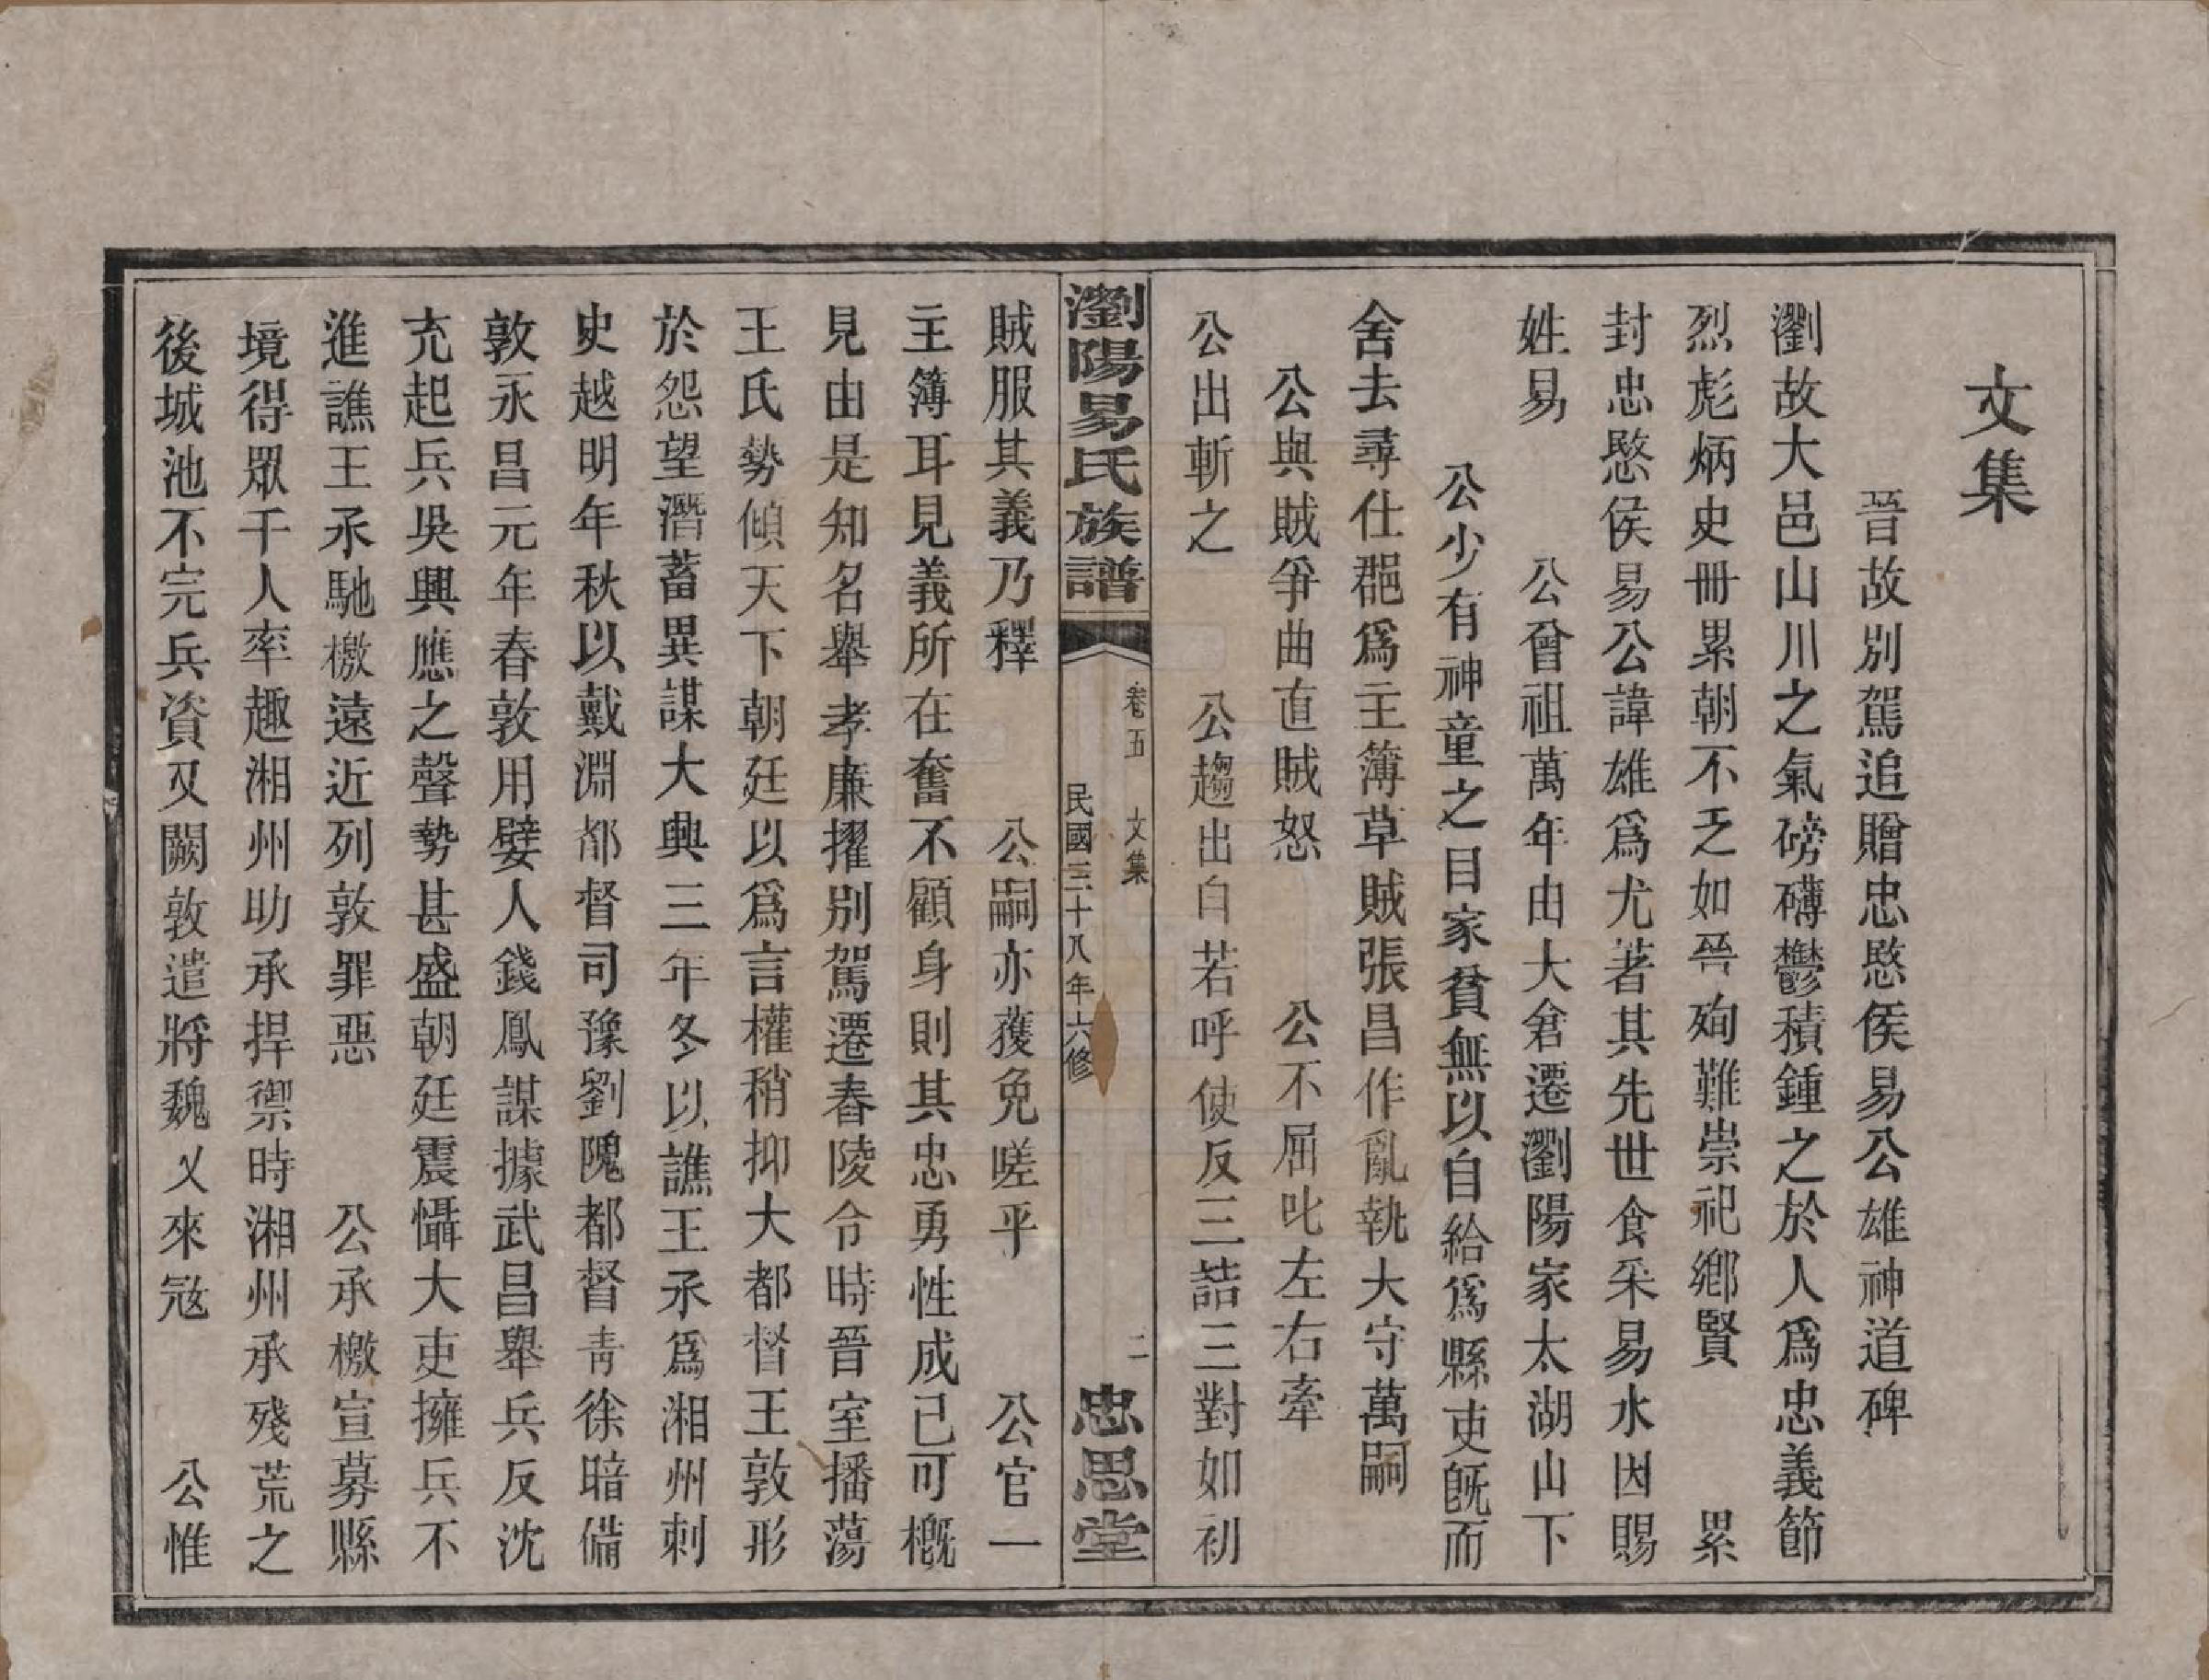 文集
晉故別駕追贈忠愍侯易公雄神道碑
瀏故大邑山川之氣磅礴鬱積鍾之於人爲忠義節
烈彪炳史冊累朝不乏如晉殉難崇祀鄉賢　累
封忠愍侯易公諱雄爲尤著其先世食采易水因賜
姓易　公曾祖萬年由大倉遷瀏陽家太湖山下
公少有神童之目家貧無以自給爲縣吏旣而
舍去尋仕郡爲主簿草賊張昌作亂執大守萬嗣
公與賊爭曲直賊怒　公不屈叱左右牽
公出斬之　公趨出自若呼使反三詰三對如初
瀏陽易氏族譜　卷五　文集　民國三十八年六修　二　忠思堂
賊服其義乃釋　公嗣亦獲免嗟乎　公官一
主簿耳見義所在奮不顧身則其忠勇性成已可槪
見由是知名舉孝廉擢別駕遷舂陵令時晉室播蕩
王氏勢傾天下朝廷以爲言權稍抑大都督王敦形
於怨望潛蓄異謀大興三年冬以譙王承爲湘州刺
史越明年秋以戴淵都督司豫劉隗都督青徐暗備
敦永昌元年春敦用嬖人錢鳳謀據武昌舉兵反沈
充起兵吳興應之聲勢甚盛朝廷震懾大吏擁兵不
進譙王承馳檄遠近列敦罪惡　公承檄宣募縣
境得眾千人率趣湘州助承捍禦時湘州承殘荒之
後城池不完兵資又闕敦遣將魏乂來寇　公惟